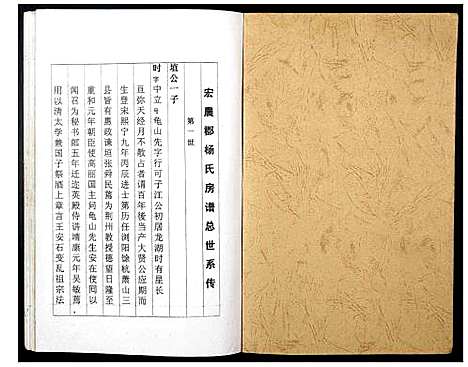 宏農郡杨氏房谱总世系传
第一世
埴公一子
时字中立号龟山先字行可子江公初居龙湖时有星长
亘弥天经月不散占者谓百年后当产大贤公应期而
生登宋熙宁九年丙辰进士第历任浏阳馀杭萧山三
县皆有惠政谏垣张舜民荐为荆州教授德望日隆至
重和元年朝臣使高丽国主问龟山先生安在使回以
闻召为秘书郎五年迁迩英殿侍讲靖康元年吴敏荐
用以清太学兼国子祭酒上章言王安石变乱祖宗法